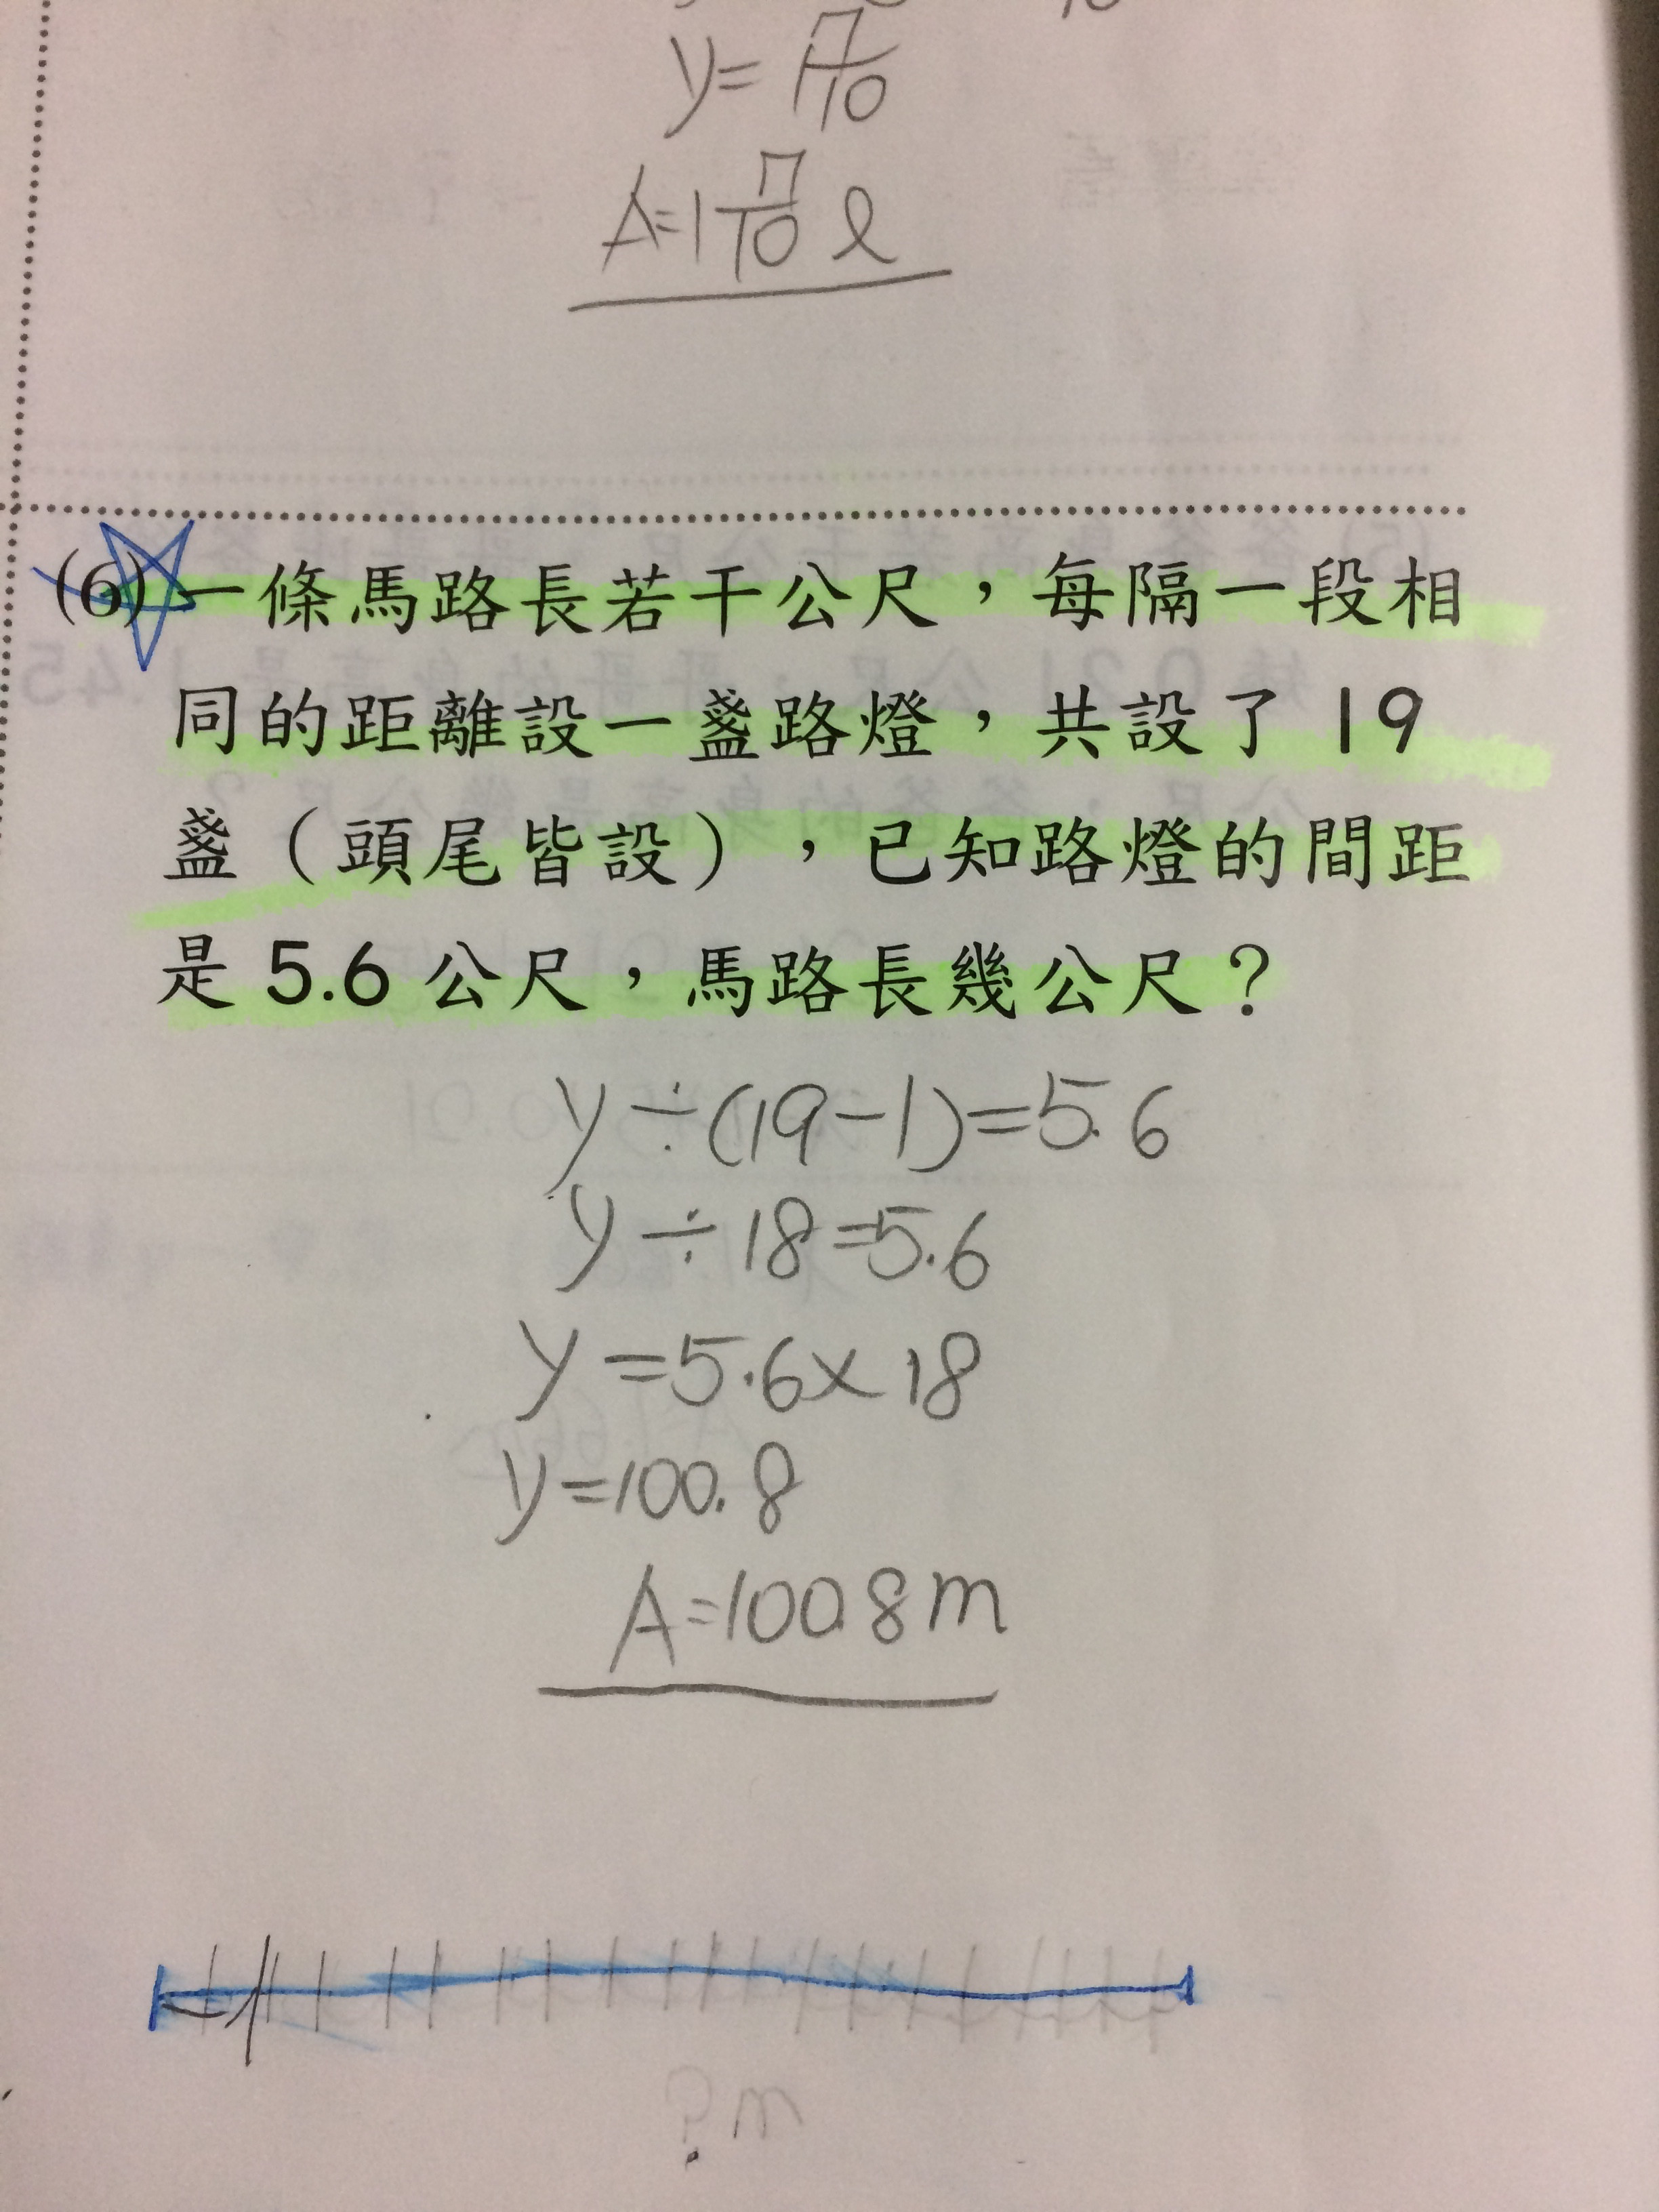 y= 1 7/10
A=1 7/10 ℓ
(6) 一條馬路長若干公尺，每隔一段相
同的距離設一盞路燈，共設了 19
盞（頭尾皆設），已知路燈的間距
是 5.6 公尺，馬路長幾公尺？
y÷(19-1)=5.6
y÷18=5.6
y=5.6×18
y=100.8
A=100.8m
? m